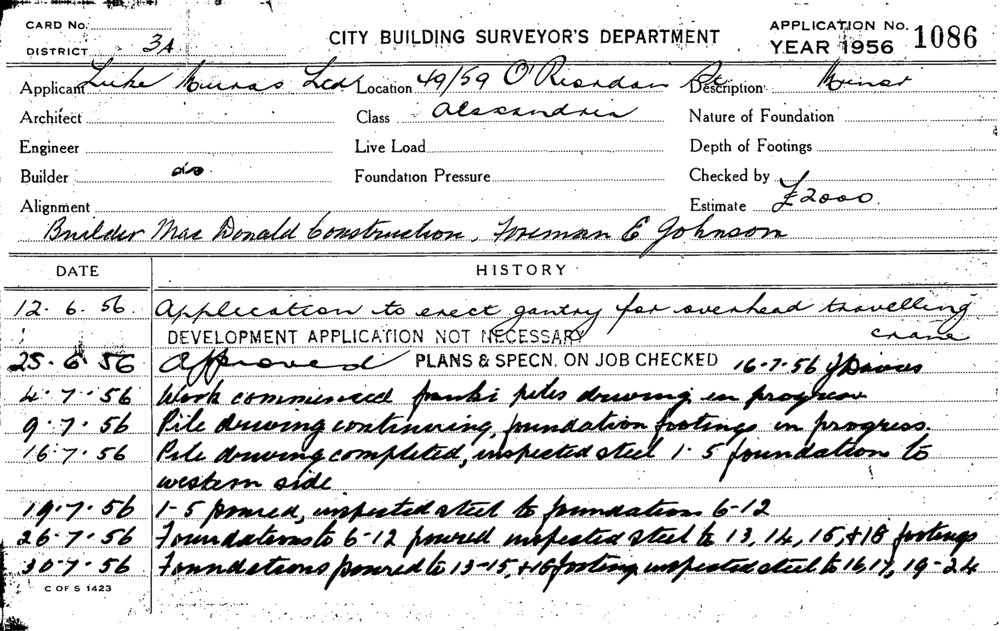 CARD No.
CITY BUILDING SURVEYOR'S DEPARTMENT
APPLICATION No. 1086
DISTRICT 3A
YEAR 1956
Applicant Luke Ltd Location 49/59 O'Riordan St Description Minor
Architect Class Alexandria Nature of Foundation
Engineer Live Load Depth of Footings
Builder do. Foundation Pressure Checked by
Alignment Estimate £2000.
Builder Mac Donald Construction, Foreman E Johnson
DATE HISTORY
12. 6. 56. Application to erect gantry for overhead travelling
crane
DEVELOPMENT APPLICATION NOT NECESSARY
25. 6. 56 Approved PLANS & SPECN. ON JOB CHECKED 16-7-56 J Davies
4. 7. 56 Work commenced franki piles driving in progress.
9. 7. 56 Pile driving continuing, foundation footings in progress.
16. 7. 56 Pile driving completed, inspected steel 1-5 foundation to
western side
19. 7. 56 1-5 poured, inspected steel to foundations 6-12
26. 7. 56 Foundations to 6-12 poured inspected steel to 13, 14, 15, +18 footings
30. 7. 56 Foundations poured to 13-15, +18 footing inspected steel to 16 17, 19-24
C OF S 1423